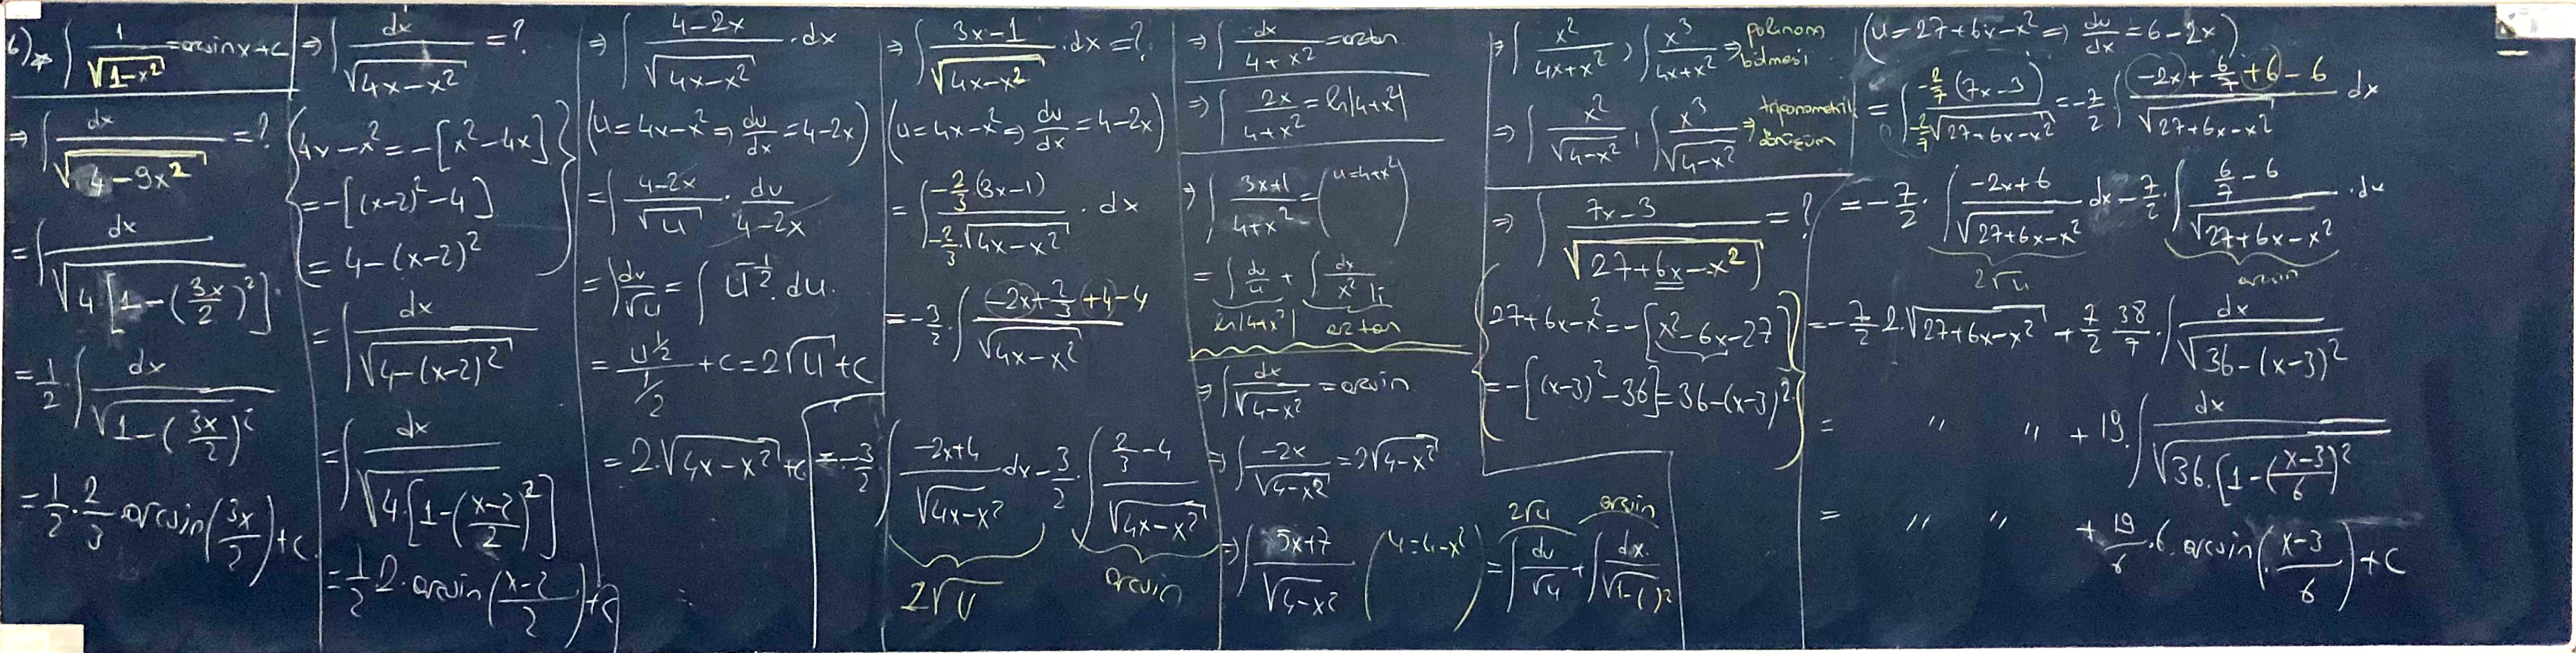 6) * ∫ 1/√(1-x²) = arcsinx+c
⇒ ∫ dx/√(4-9x²) = ?
= ∫ dx/√(4[1-(3x/2)²])
= 1/2 ∫ dx/√(1-(3x/2)²)
= 1/2 · 2/3 · arcsin(3x/2)+c
⇒ ∫ dx/√(4x-x²) = ?
{4x-x² = -[x²-4x]
= -[(x-2)²-4]
= 4-(x-2)²}
= ∫ dx/√(4-(x-2)²)
= ∫ dx/√(4·[1-(x-2/2)²])
= 1/2 · 2 · arcsin(x-2/2)+c
⇒ ∫ 4-2x/√(4x-x²) · dx
(u=4x-x² ⇒ du/dx = 4-2x)
= ∫ 4-2x/√u · du/4-2x
= ∫ du/√u = ∫ u^(-1/2) · du
= u^(1/2)/(1/2) + c = 2√u + c
= 2·√(4x-x²) + c
⇒ ∫ 3x-1/√(4x-x²) · dx = ?
(u=4x-x² ⇒ du/dx = 4-2x)
= ∫ -2/3 (3x-1)/-2/3 · √(4x-x²) · dx
= -3/2 · ∫ -2x+2/3+4-4/√(4x-x²)
= -3/2 ∫ -2x+4/√(4x-x²) dx - 3/2 · ∫ 2/3-4/√(4x-x²)
2√u arcsin
⇒ ∫ dx/4+x² = arctan
⇒ ∫ 2x/4+x² = ln|4+x²|
⇒ ∫ 3x+1/4+x² = (u=4+x²)
= ∫ du/u + ∫ dx/x²+1
ln|4+x²| arctan
⇒ ∫ dx/√(4-x²) = arcsin
⇒ ∫ -2x/√(4-x²) = 2√(4-x²)
⇒ ∫ 5x+7/√(4-x²) (u=4-x²) = ∫ du/√u + ∫ dx/√(1-( )²)
2√u arcsin
⇒ ∫ x²/4x+x², ∫ x³/4x+x² ⇒ polinom bölmesi
⇒ ∫ x²/√(4-x²), ∫ x³/√(4-x²) ⇒ trigonometrik dönüşüm
⇒ ∫ 7x-3/√(27+6x-x²) = ?
{27+6x-x² = -[x²-6x-27]
= -[(x-3)²-36] = 36-(x-3)²}
(u=27+6x-x² ⇒ du/dx = 6-2x)
= ∫ -2/7 (7x-3)/-2/7 √(27+6x-x²) = -7/2 ∫ -2x+6/7+6-6/√(27+6x-x²) dx
= -7/2 · ∫ -2x+6/√(27+6x-x²) dx - 7/2 · ∫ 6/7-6/√(27+6x-x²) · dx
2√u arcsin
= -7/2 · 2·√(27+6x-x²) + 7/2 · 38/7 · ∫ dx/√(36-(x-3)²)
= " " + 19·∫ dx/√(36·[1-(x-3/6)²])
= " " + 19/6 · 6 · arcsin(x-3/6)+c